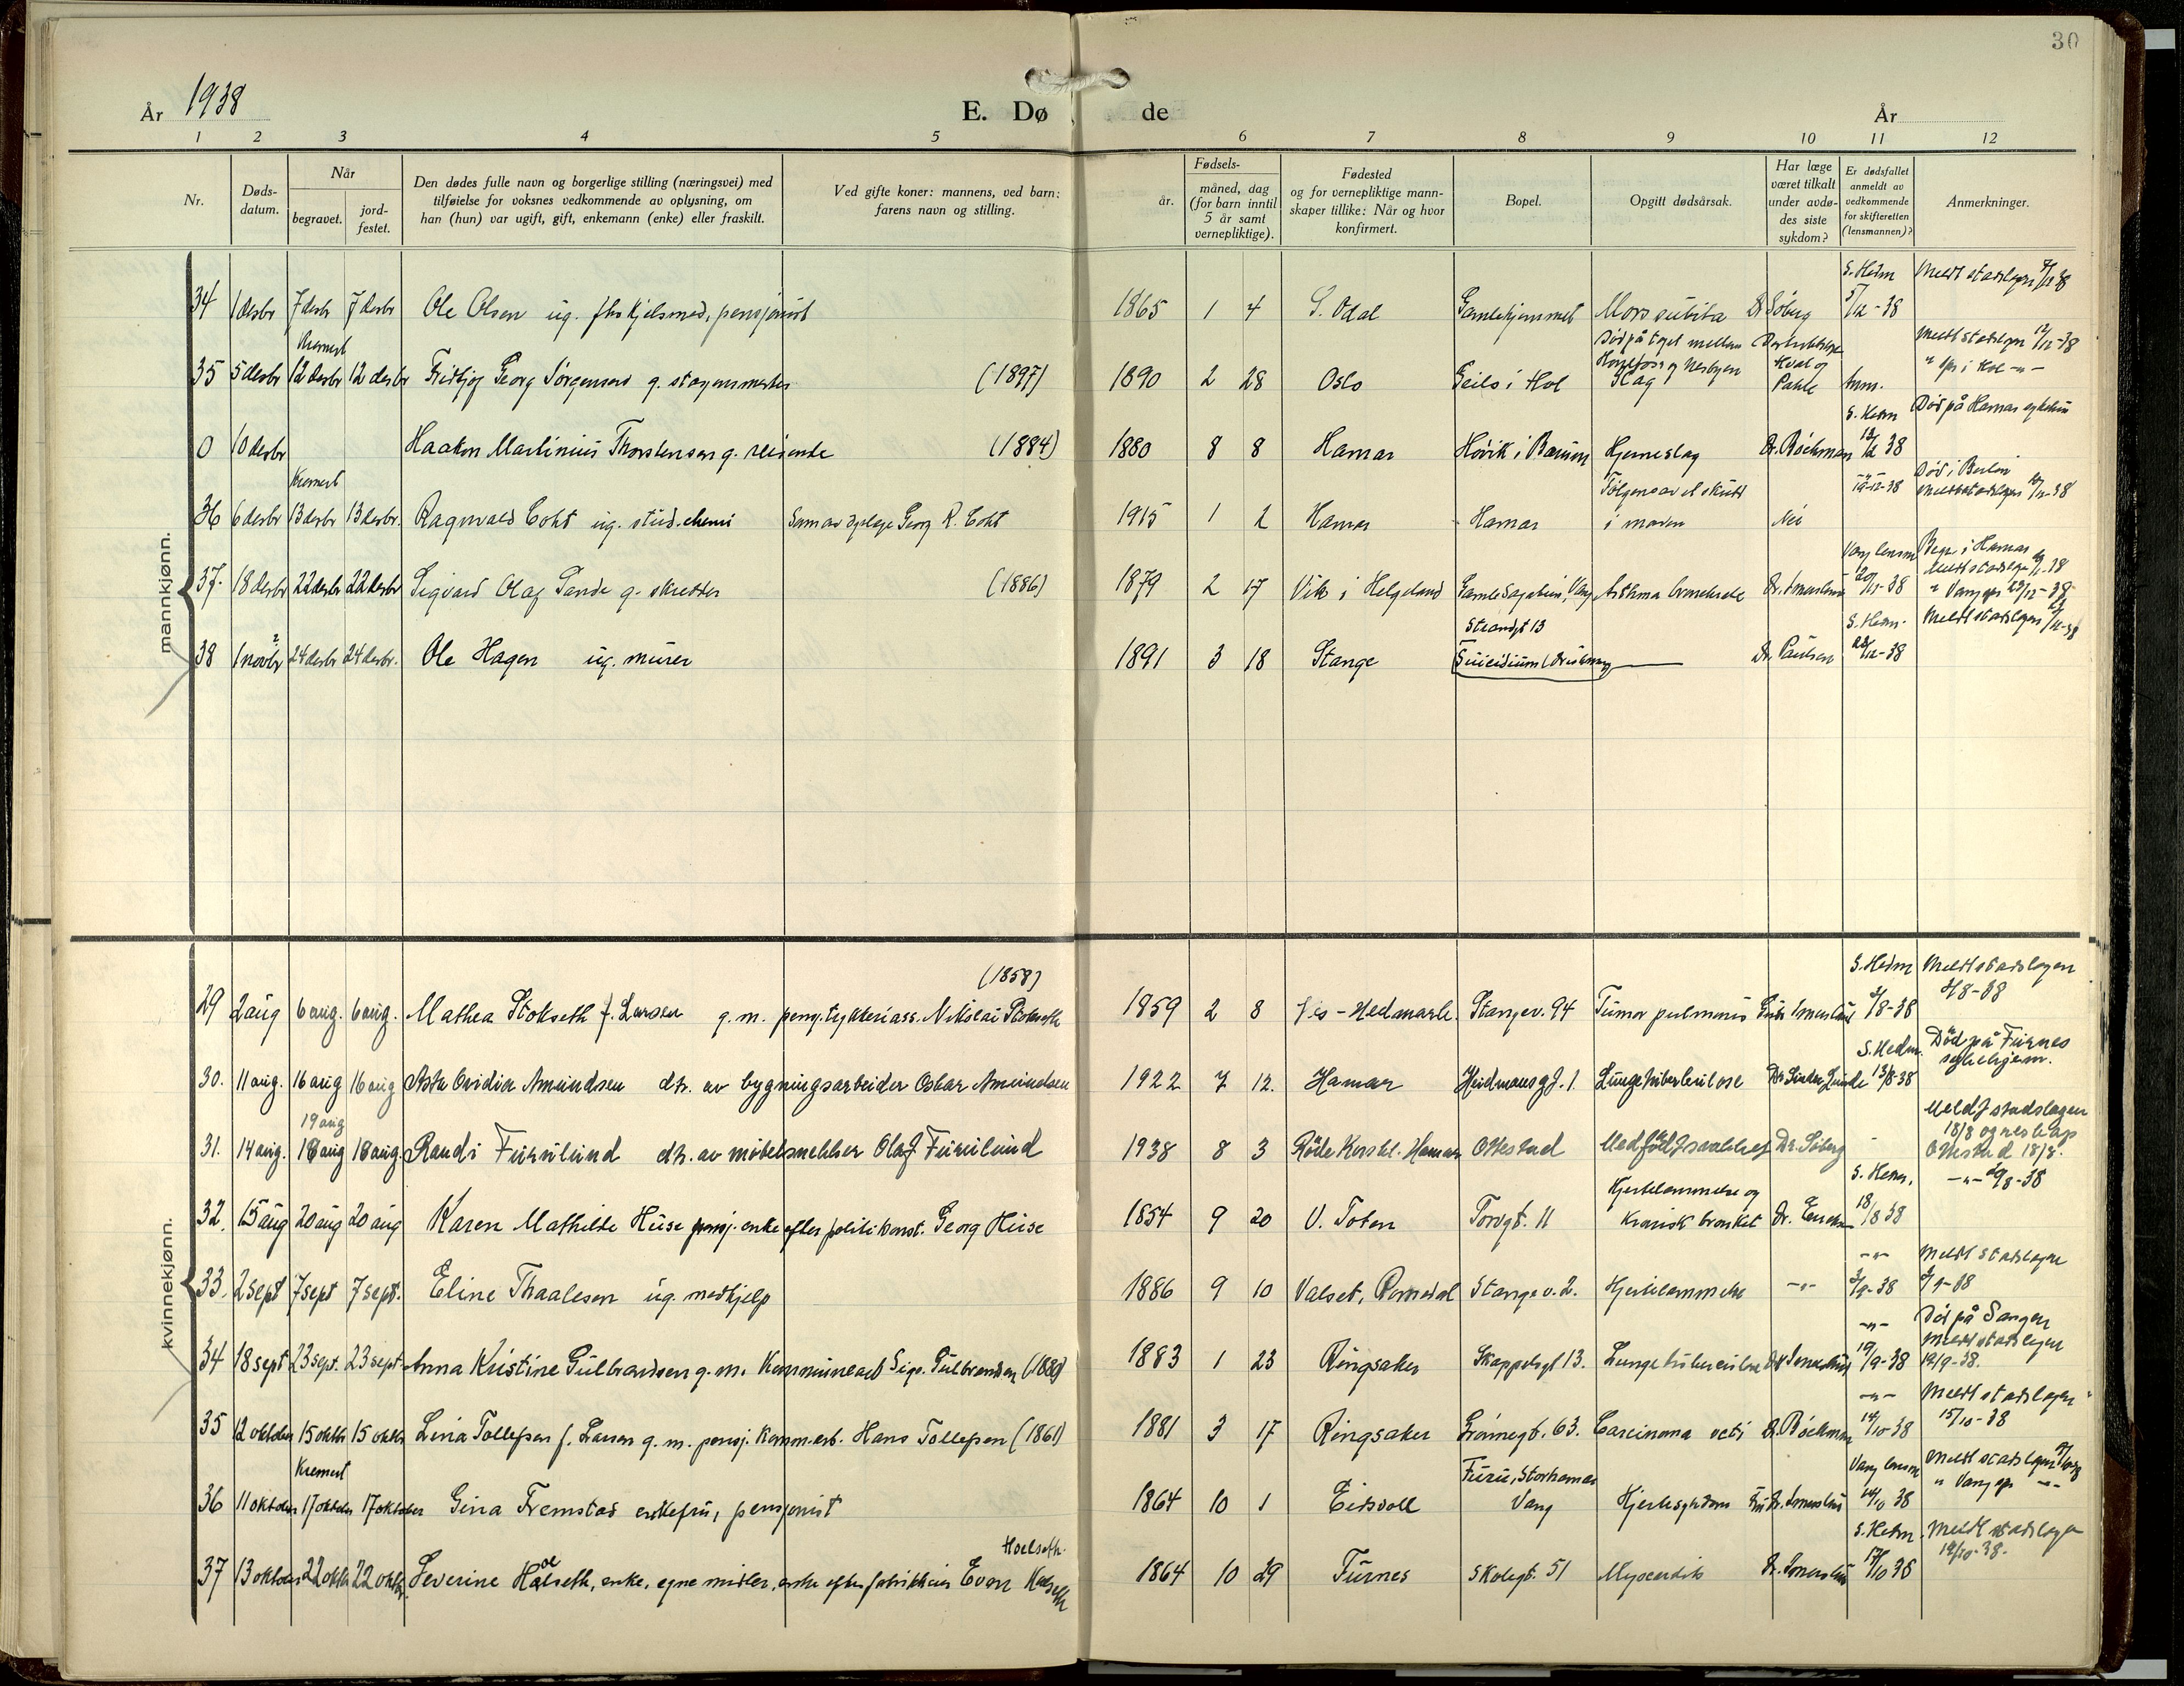 30
År 1938 E. Dø de År
1 2 3 4 5 6 7 8 9 10 11 12
Nr.
Døds-
datum.
Når
begravet.
jord-
festet.
Den dødes fulle navn og borgerlige stilling (næringsvei) med
tilføielse for voksnes vedkommende av oplysning, om
han (hun) var ugift, gift, enkemann (enke) eller fraskilt.
Ved gifte koner: mannens, ved barn:
farens navn og stilling.
Fødsels-
år.
måned, dag
(for barn inntil
5 år samt
vernepliktige).
Fødested
og for vernepliktige mann-
skaper tillike: Når og hvor
konfirmert.
Bopel.
Opgitt dødsårsak.
Har læge
været tilkalt
under avdø-
des siste
sykdom?
Er dødsfallet
anmeldt av
vedkommende
for skifteretten
(lensmannen)?
Anmerkninger.
mannkjønn.
S. Hedm Meldt stadslegen
34 1 desbr 7 desbr 7 desbr Ole Olsen ug. pensjonist 1865 1 4 S. Odal Gamlehjemmet Mors subita Dr Søberg 5/12-38
Kremert Død på toget mellem Meldt stadslegen 12/12-38
Hønefoss og Nesbyen Hval og
35 5 desbr 12 desbr 12 desbr Fridtjof Georg Jørgensen g. (1897) 1890 2 28 Oslo Geilo i Hol Slag Anm.
S. Hedm Død på Hamar sykehus
0 10 desbr Haakon Martinius Thorstensen g. reisende (1884) 1880 8 8 Hamar Høvik i Bærum Hjerneslag Dr. Bøckman 12/12 38
Kremert Følgene av et skudd Død i Berlin
Meldt stadslegen
36 6 desbr 13 desbr 13 desbr. Ragnvald Coht ug. stud. chemi Sønn av Georg R. Coht 1915 1 2 Hamar Hamar i maven Nei
Vang lensm Begr. i Hamar
Meldt stadslegen
37. 18 desbr 22 desbr 22 desbr Sigvard Olaf Sande g. skredder (1886) 1879 2 17 Vik i Helgeland Vang Asthma bronchiale
Strandgt 13 S. Hedm. Meldt stadslegen
38 1 novbr 24 desbr 24 desbr. Ole Hagen ug. murer 1891 3 18 Stange Suicidium (drukning) Dr. Paulsen
kvinnekjønn.
(1858) S. Hedm Meldt stadslegen
29 2 aug 6 aug. 6 aug. Mathea Stokseth f. Larsen g. m. Nikolai Stokseth 1859 2 8 Stangev. 94 Tumor pulmonis 3/8-38
S. Hedm. Død på Furnes
sykehjem.
30. 11 aug. 16 aug 16 aug Asta Ovidia Amundsen dtr. av bygningsarbeider Oskar Amundsen 1922 7 12. Hamar Heidmansgt. 1 Lungetuberkulose 13/8-38
19 aug Meldt stadslegen
18/8 og
31. 14 aug. 18 aug 18 aug. Randi Furulund dtr. av møbelsnekker Olaf Furulund 1938 8 3 Røde Kors kl. Hamar Ottestad Dr. Søberg - Ottestad 18/8.
Hjertelammelse og S. Hedm.
32. 15 aug 20 aug 20 aug Karen Mathilde Huse pensj. enke efter politikonst. Georg Huse 1854 9 20 V. Toten Torvgt. 11 Kronisk bronkit 18/8 38
-"- Meldt stadslegen
33. 2 sept 7 sept 7 sept. Eline Thaalesen ug. medhjelp 1886 9 10 Valset, Romedal Stangev. 2. Hjertelammelse -"- 3/9-38
-"- Død på Sanger
Meldt stadslegen
34 18 sept 23 sept. 23 sept. Anna Kristine Gulbrandsen g. m. Kommunearb Sigv. Gulbrandsen 1883 1 23 Ringsaker Skappelsgt 13. Lungetuberkulose 19/9-38 19/9-38.
-"- Meldt stadslegen
35 12 oktober 15 oktbr 15 oktbr Lina Tollefsen f. Larsen g. m. pensj. Komm.arb. Hans Tollefsen (1861) 1881 3 17 Ringsaker Grønnegt. 63. Carcinoma recti Dr. Bøckman 14/10-38 15/10-38
Kremert Furu, Storhamar Vang lensm Meldt stadslegen
36 11 oktober 17 oktober 17 oktober Gina Fremstad enkefru, pensjonist 1864 10 1 Eidsvoll Vang Hjertesykdom 14/10 38
Hoelseth. S. Hedm. Meldt stadslegen
37 13 oktober 22 oktbr 22 oktbr. Severine Hoelseth, enke, egne midler, enke efter fabrikkeier Even 1864 10 29 Furnes Skolegt. 51 Myocardit 17/10 38 19/10-38.